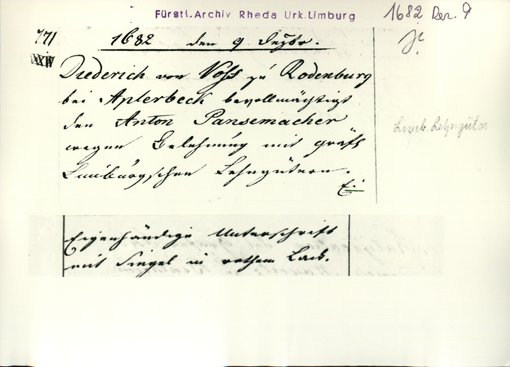 Fürstl. Archiv Rheda Urk. Limburg
1682 Dez. 9
771
XXIV
1682 den 9 Dezbr.
Diederich von Voss zu Rodenburg
bei Aplerbeck bevollmächtigt
den Anton Pansemacher
wegen Belehnung mit gräfl.
Limburgschen Lehngütern.
Limb. Lehngüter
Eigenhändige Unterschrift
mit Siegel in rothem Lack.